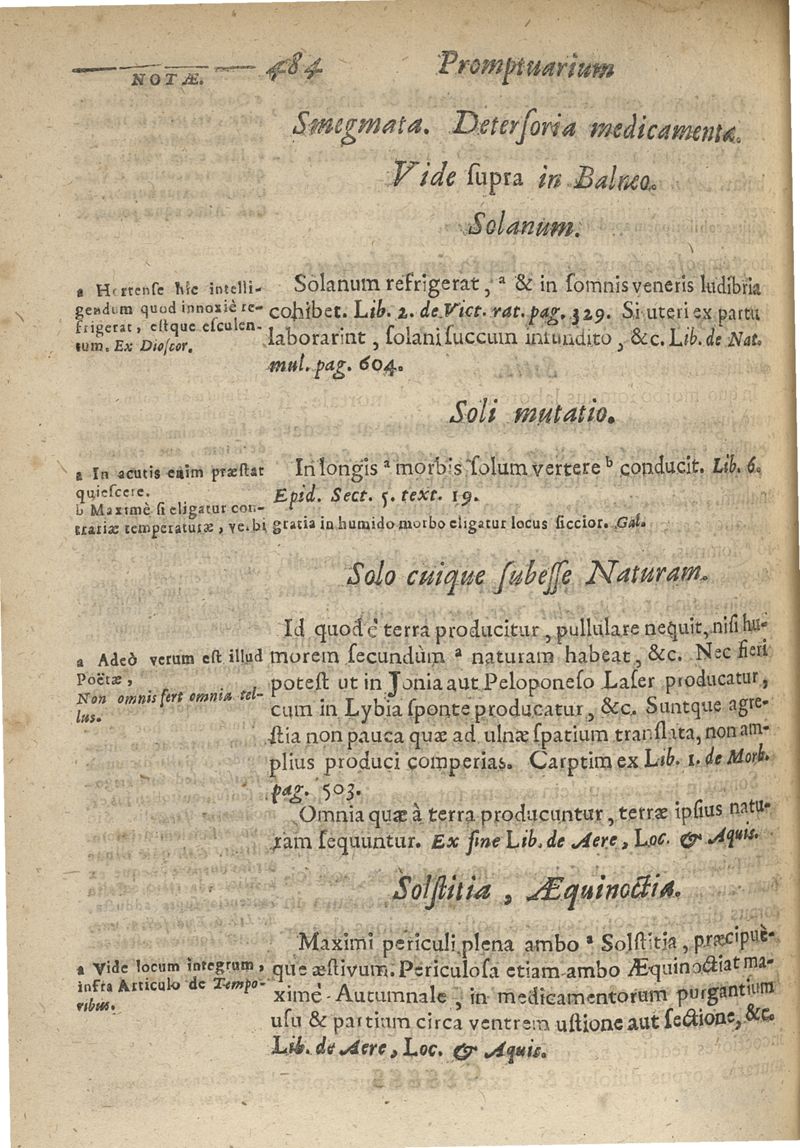 NOTÆ.
484 Promptuarium
Smegmata. Deterſoria medicamenta.
Vide ſupra in Balneo.
Solanum.
a Hortenſe hîc intelli-
gendum quod innoxiè re-
frigerat, eſtque eſculen-
tum. Ex Dioſcor.
Solanum refrigerat, ª & in ſomnis veneris ludibria
cohibet. Lib. 2. de Vict. rat. pag. 329. Si uteri ex partu
laborarint, ſolani ſuccum infundito, &c. Lib. de Nat.
mul. pag. 604.
Soli mutatio.
a In acutis enim præſtat
quieſcere.
b Maximè ſi eligatur con-
trariæ temperaturæ, verbi gratia in humido morbo eligatur locus ſiccior. Gal.
In longis ª morbis ſolum vertere ᵇ conducit. Lib. 6.
Epid. Sect. 5. text. 19.
Solo cuique ſubeſſe Naturam.
a Adeò verum eſt illud
Poëtæ,
Non omnis fert omnia tel-
lus.
Id quod è terra producitur, pullulare nequit, niſi hu-
morem ſecundùm ª naturam habeat, &c. Nec fieri
poteſt ut in Jonia aut Peloponeſo Laſer producatur,
cum in Lybia ſponte producatur, &c. Suntque agre-
ſtia non pauca quæ ad ulnæ ſpatium tranſlata, non am-
plius produci comperias. Carptim ex Lib. 1. de Morb.
pag. 503.
Omnia quæ à terra producuntur, terræ ipſius natu-
ram ſequuntur. Ex fine Lib. de Aere, Loc. & Aquis.
Solſtitia, Æquinoctia.
a Vide locum integrum,
infra Articulo de Tempo-
ribus.
Maximi periculi plena ambo ª Solſtitia, præcipuè-
que æſtivum. Periculoſa etiam ambo Æquinoctiat ma-
ximè Autumnale, in medicamentorum purgantium
uſu & partium circa ventrem uſtione aut ſectione, &c.
Lib. de Aere, Loc. & Aquis.